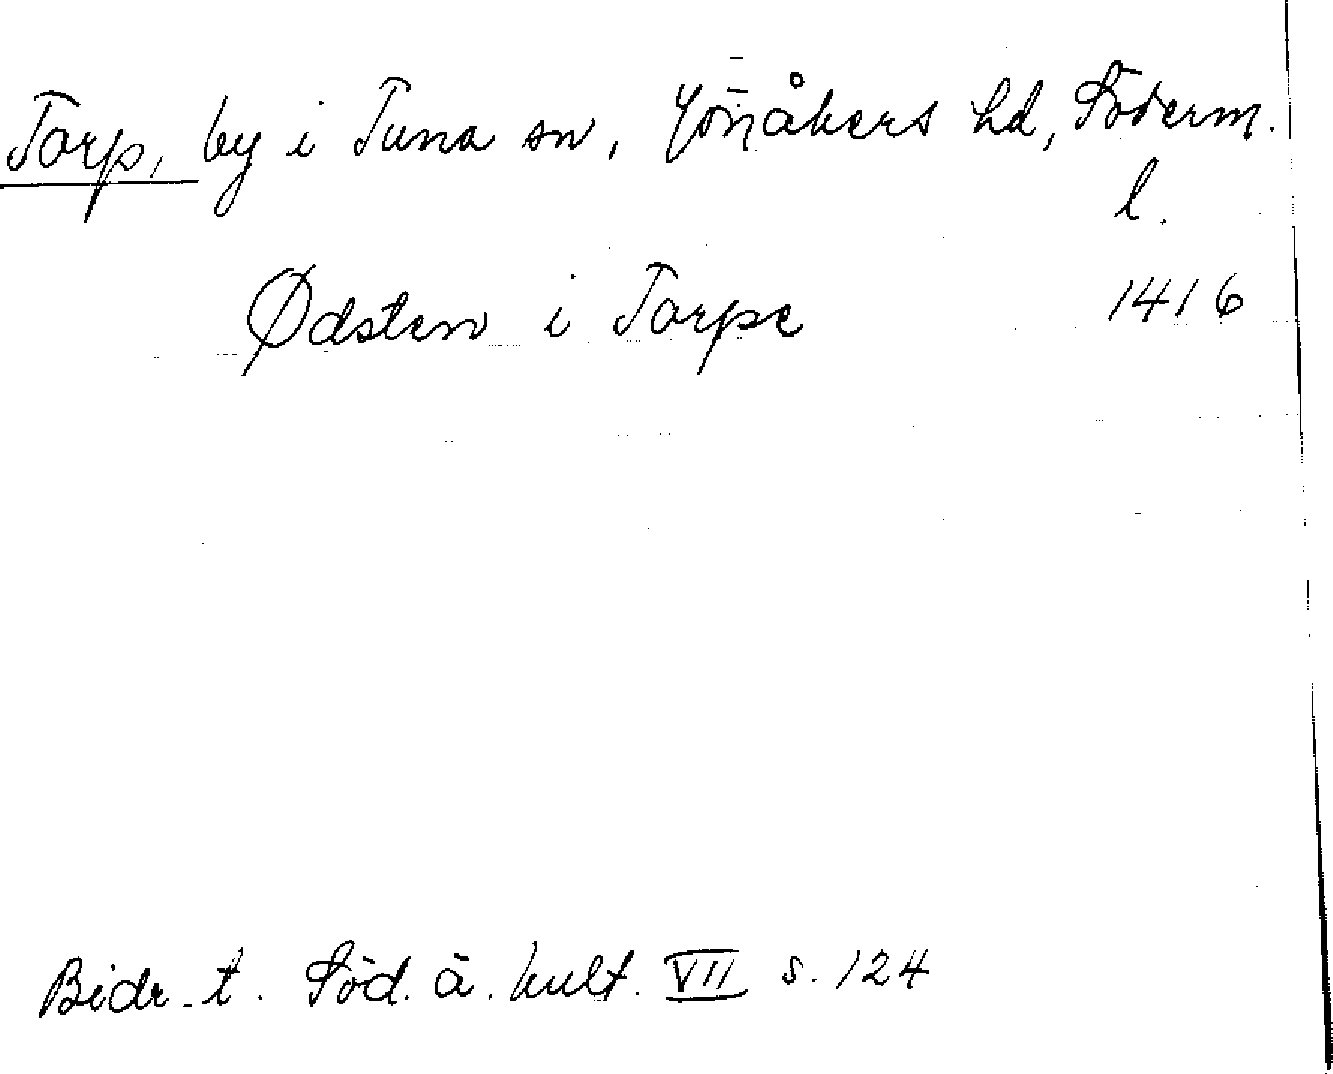 Torp, by i Tuna sn, Jönåkers hd, Söderm.
l.
Ødsten i Torpe 1416
Bidr. t. Söd. ä. kult. VII s. 124